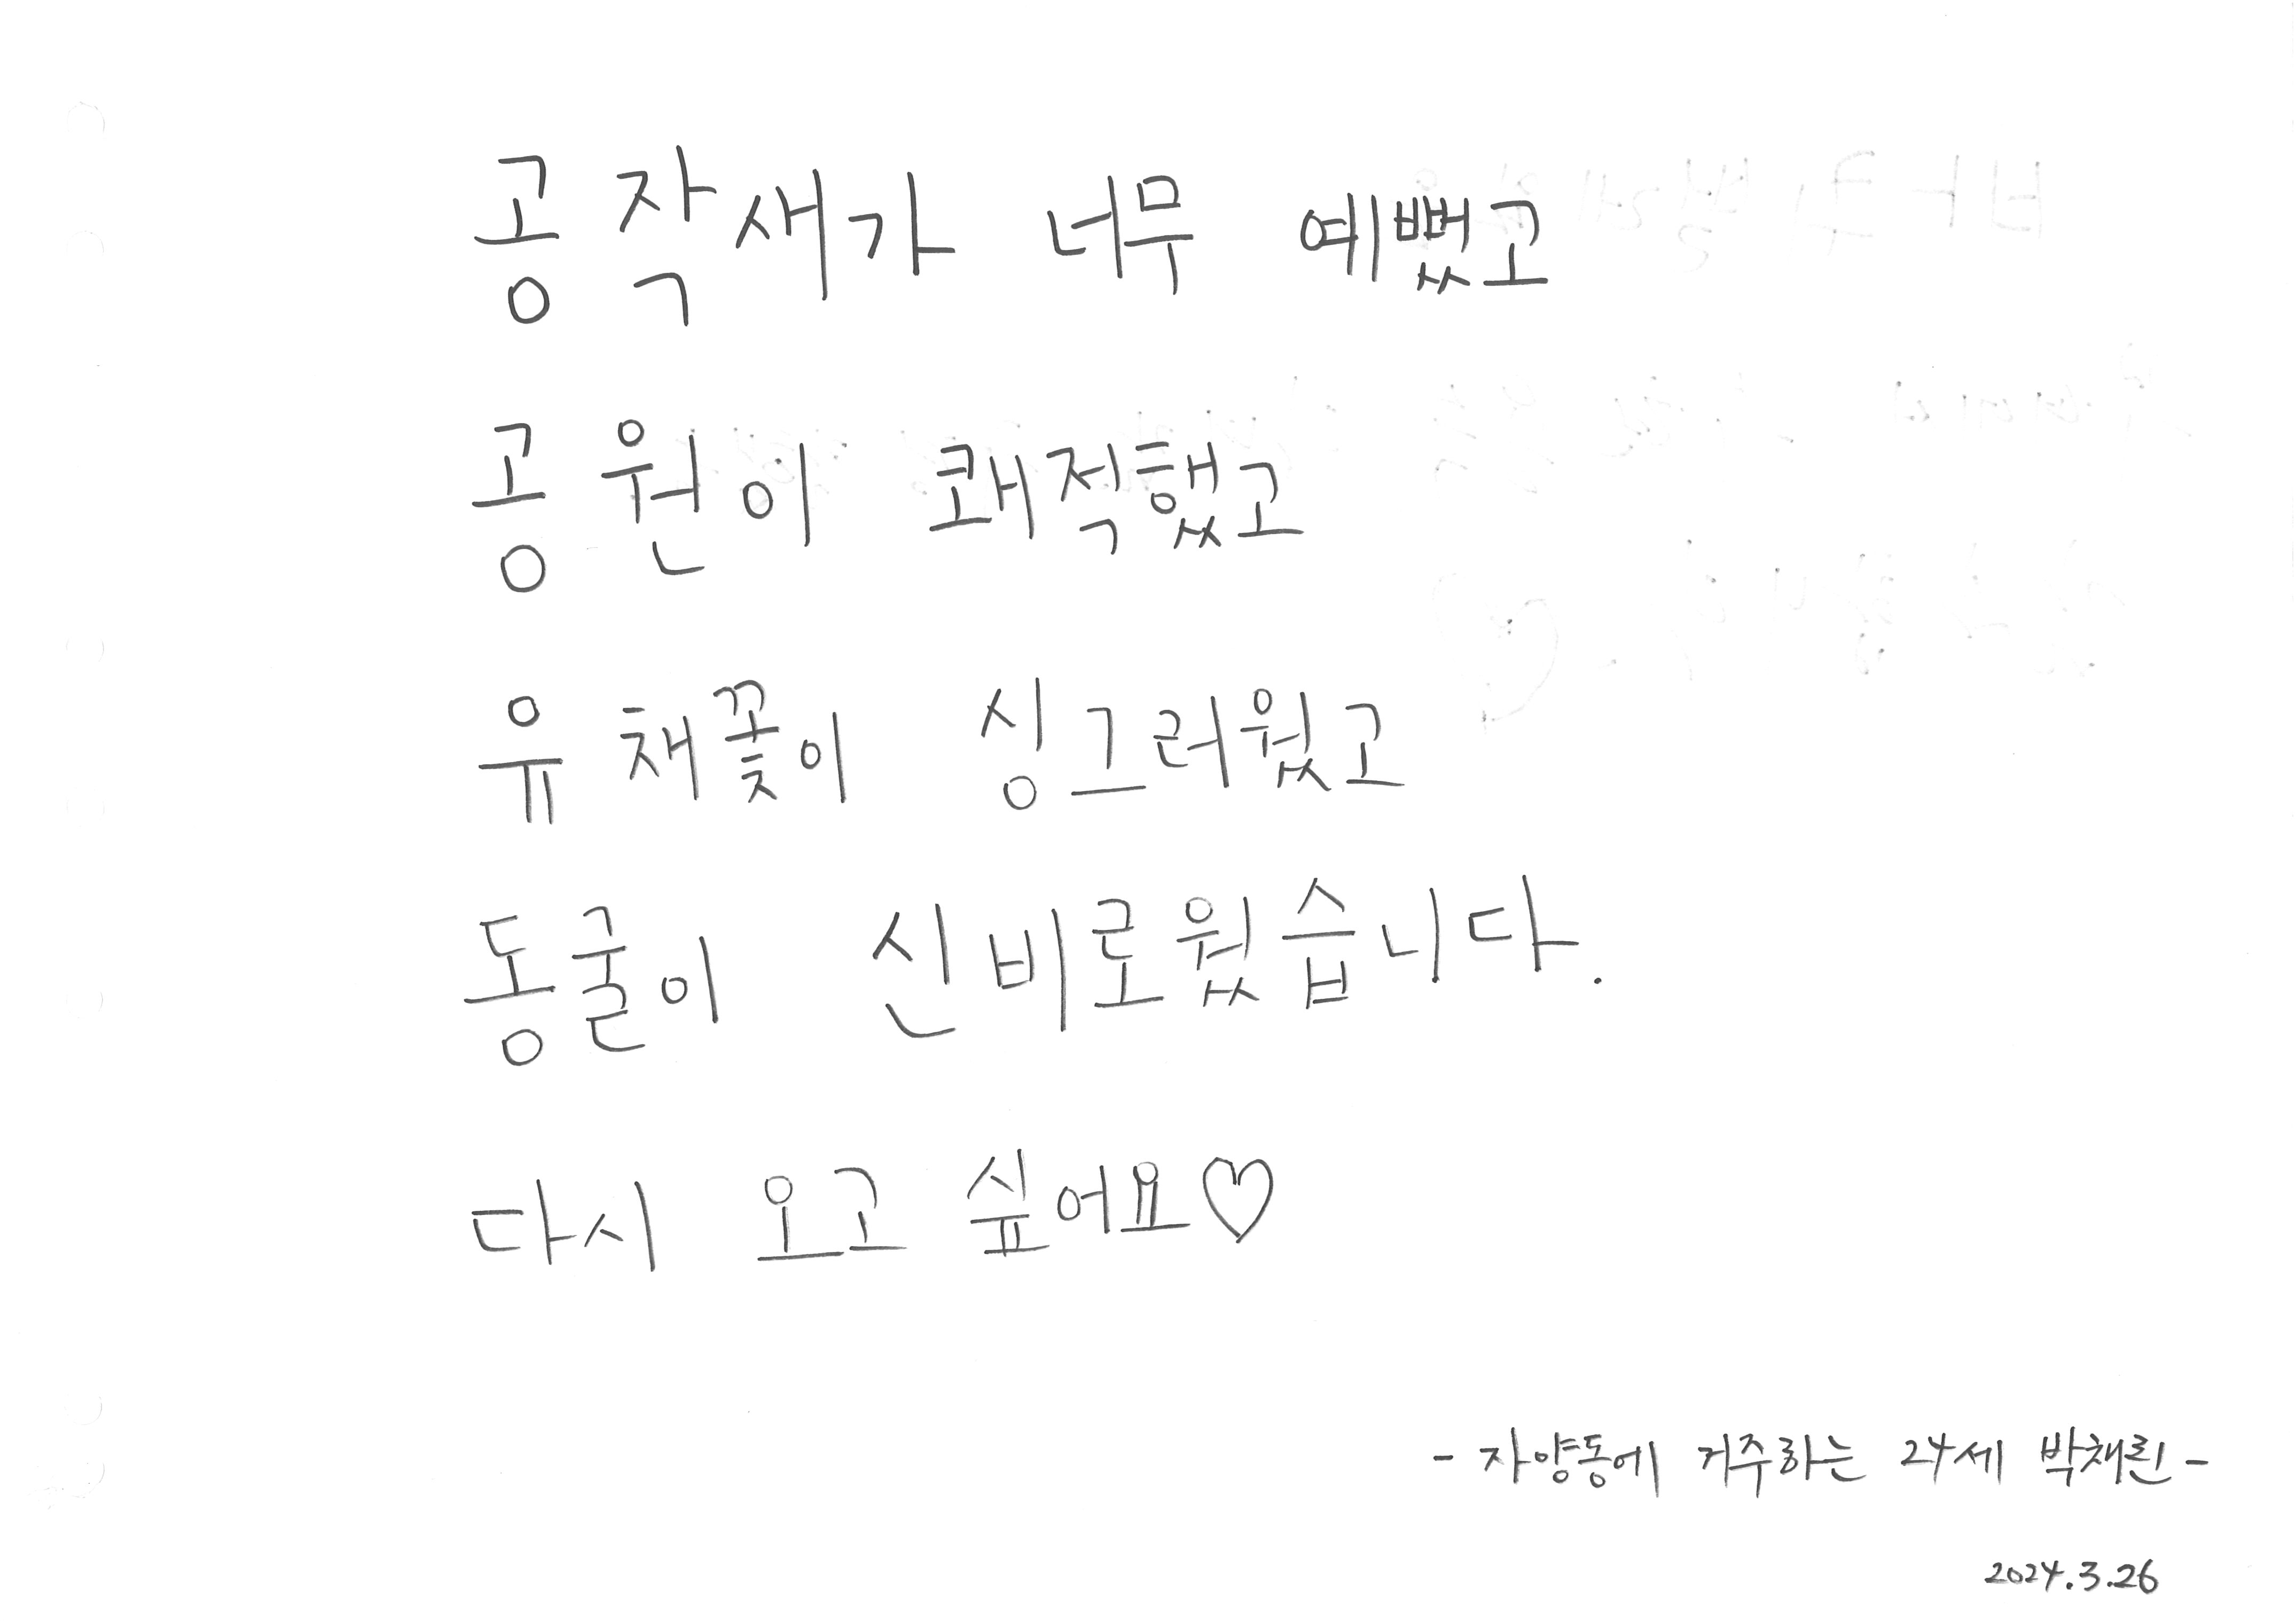 공작새가 너무 예뻤고
공원이 쾌적했고
유채꽃이 싱그러웠고
동굴이 신비로웠습니다.
다시 오고 싶어요♡
- 자양동에 거주하는 24세 박채린 -
2024.3.26